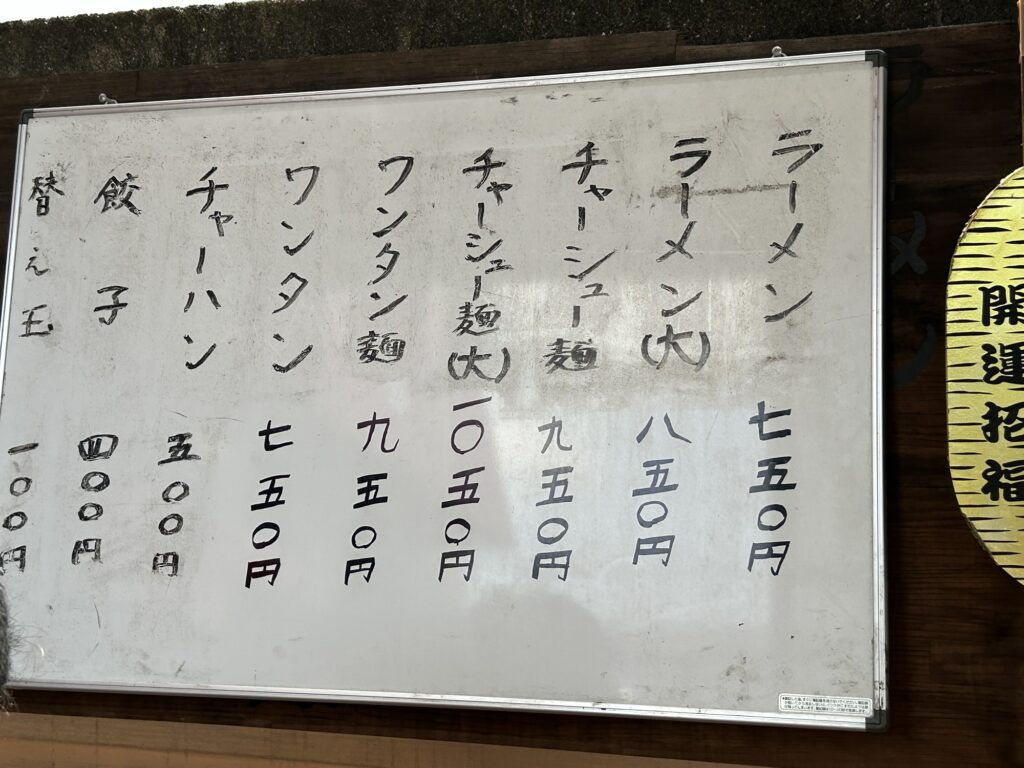 ラーメン 七五〇円
ラーメン(大) 八五〇円
チャーシュー麺 九五〇円
チャーシュー麺(大) 一〇五〇円
ワンタン麺 九五〇円
ワンタン 七五〇円
チャーハン 五〇〇円
餃子 四〇〇円
替え玉 一〇〇円
開運招福